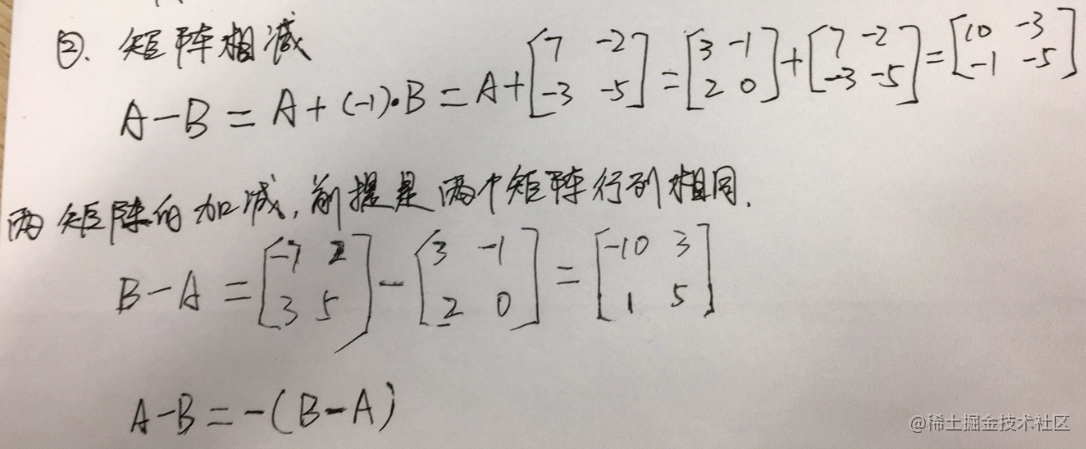 ②. 矩阵相减
A-B = A+(-1)·B = A+[7 -2; -3 -5] = [3 -1; 2 0]+[7 -2; -3 -5] = [10 -3; -1 -5]
两矩阵的加减,前提是两个矩阵行列相同.
B-A = [-7 2; 3 5]-[3 -1; 2 0] = [-10 3; 1 5]
A-B=-(B-A)
@稀土掘金技术社区